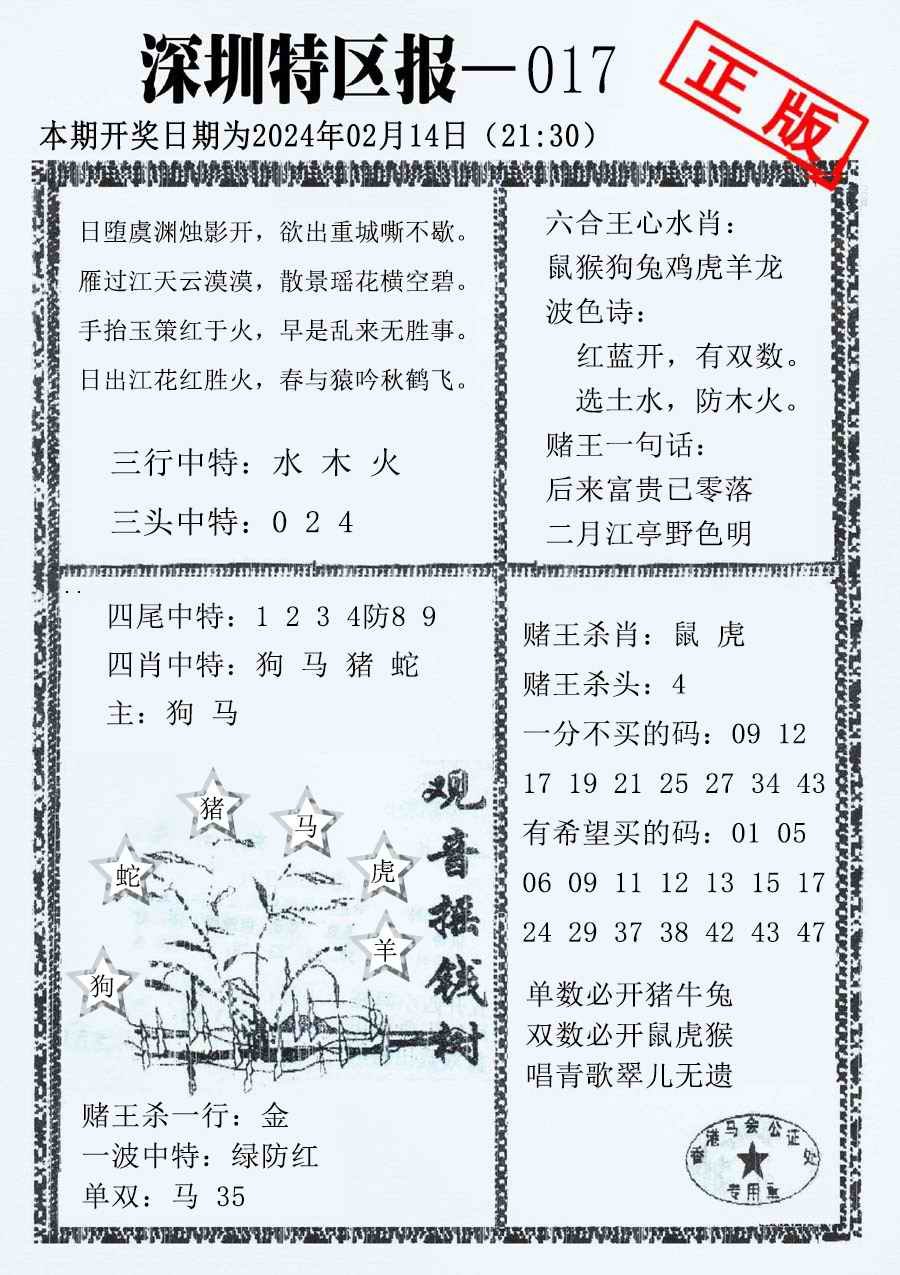 深圳特区报—017
正版
本期开奖日期为2024年02月14日（21:30）
日堕虞渊烛影开，欲出重城嘶不歇。
雁过江天云漠漠，散景瑶花横空碧。
手抬玉策红于火，早是乱来无胜事。
日出江花红胜火，春与猿吟秋鹤飞。
三行中特：水 木 火
三头中特：0 2 4
六合王心水肖：
鼠猴狗兔鸡虎羊龙
波色诗：
红蓝开，有双数。
选土水，防木火。
赌王一句话：
后来富贵已零落
二月江亭野色明
四尾中特：1 2 3 4防8 9
四肖中特：狗 马 猪 蛇
主：狗 马
猪
马
蛇
虎
羊
狗
观音摇钱树
赌王杀一行：金
一波中特：绿防红
单双：马 35
赌王杀肖：鼠 虎
赌王杀头：4
一分不买的码：09 12
17 19 21 25 27 34 43
有希望买的码：01 05
06 09 11 12 13 15 17
24 29 37 38 42 43 47
单数必开猪牛兔
双数必开鼠虎猴
唱青歌翠儿无遗
香港马会公证处
专用章